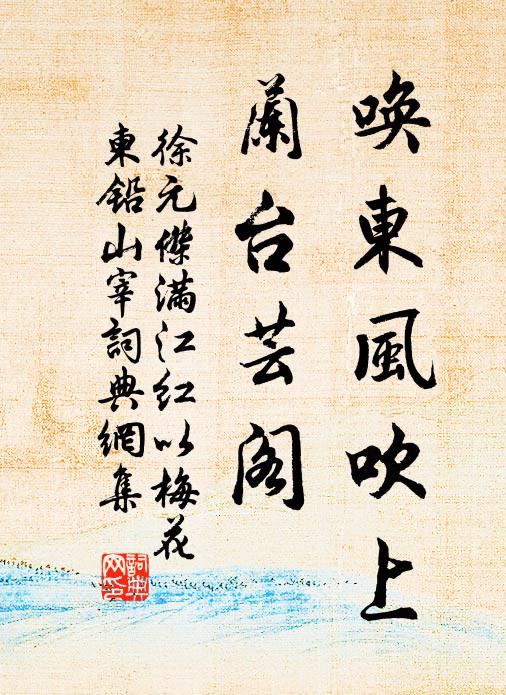 喚東風吹上
蘭台芸閣
徐元傑滿江紅以梅花
東鉛山宰詞典網集
詞典网印